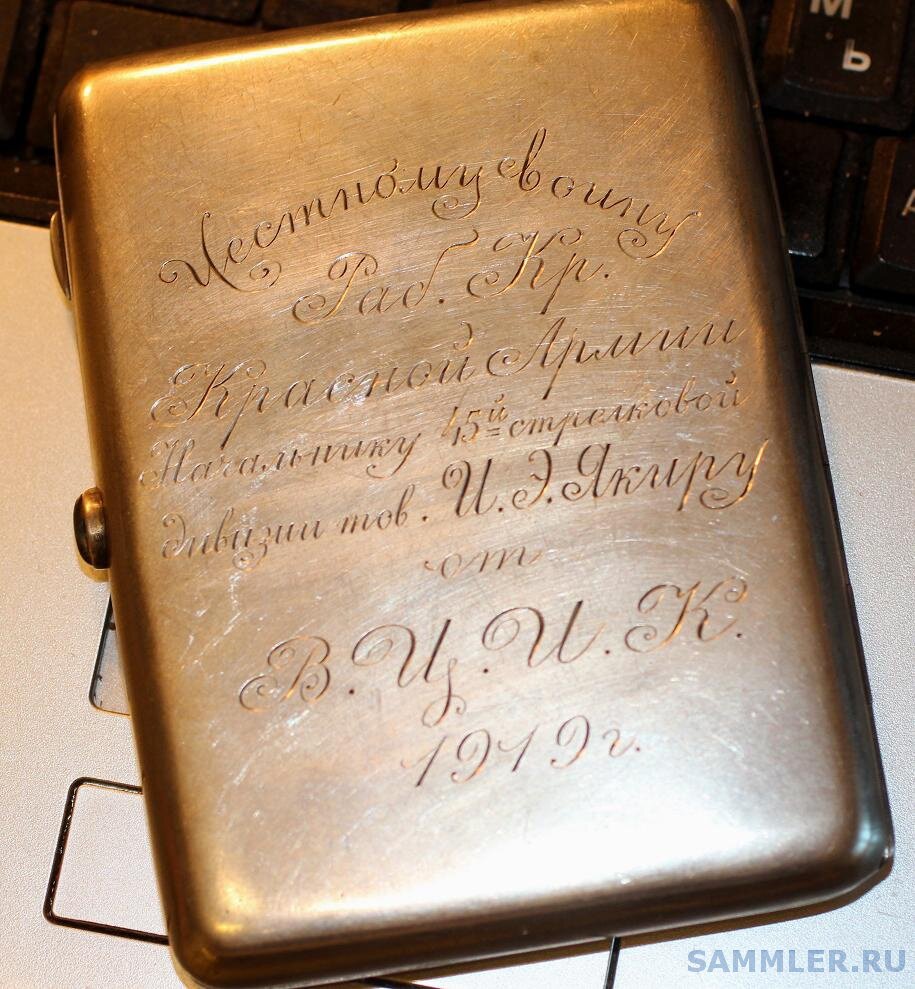 Честному воину
Раб. Кр.
Красной Армии
Начальнику 45й стрелковой
дивизии тов. И.Э. Якиру
от
В.Ц.И.К.
1919 г.
М
Ь
SAMMLER.RU